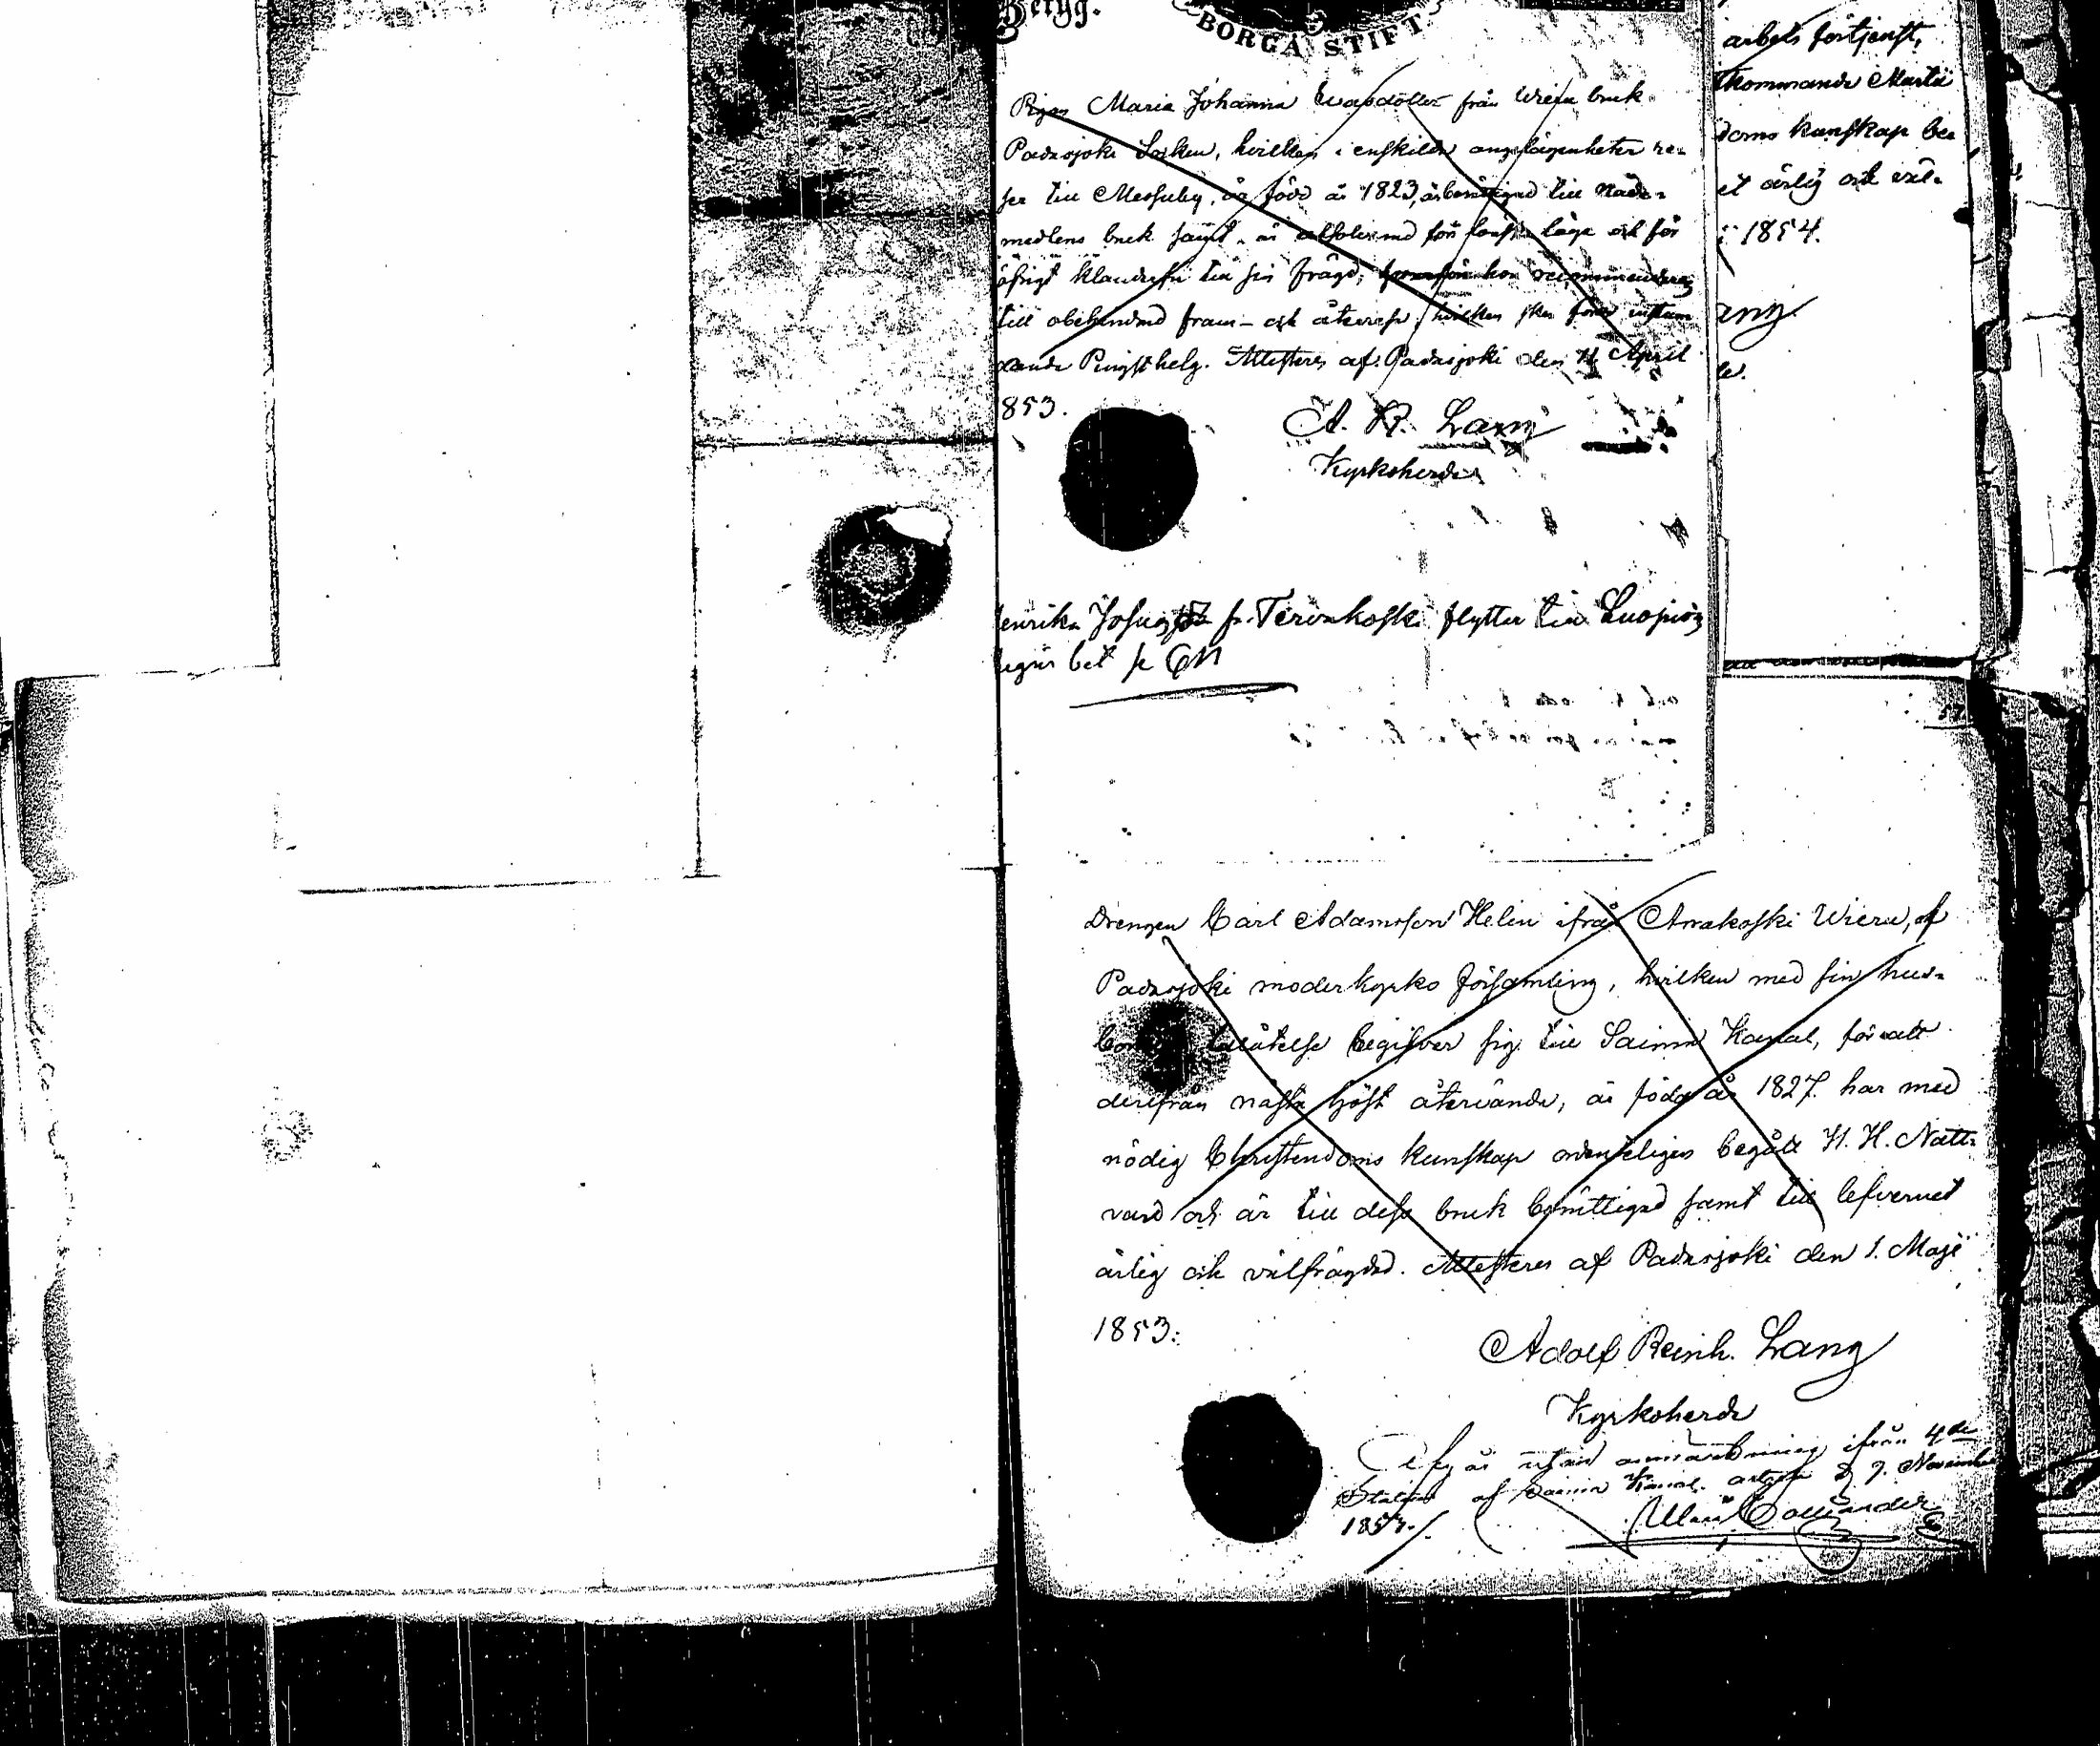 Betyg.
BORGÅ STIFT
Pigan Maria Johanna Evasdotter från Wieru bruk
Padasjoki Socken, hvilken i enskilda angelägenheter re-
ser till Messuby, är född år 1823, är berättigad till Nåde-
medlens bruk samt är
öfrigt klanderfri till sin frägd, hon recommenderas
till obehindrad fram- och återresa, hvilken sker före instun
dande Pingsthelg. Attesteras af Padasjoki den 11 April
1853.
A. R. Lang
Kyrkoherde
Josuas fr. Tervakoski flytter till Luopiois
bet
arbets förtjenst,
kommande Martii
doms kunskap be
et ärlig och väl-
1854.
ang
Drengen Carl Adamsson Helin ifrån Arrakoski Wieru, af
Padasjoki moderkyrko församling, hvilken med sin hus-
tillåtelse begifver sig till Saima Kanal, för att
derifrån nästa höst återvända, är född år 1827. har med
nödig Christendoms kunskap ordenteligen begått H. H. Natt-
vard och är till dess bruk berättigad samt till lefvernet
ärlig och välfrägdad. Attesteras af Padasjoki den 1. Maji
1853.
Adolf Reinh. Lang
Kyrkoherde
Afgår utan anmärkning ifrån 4de
Station af Saima Kanal. d 9. November
1853.